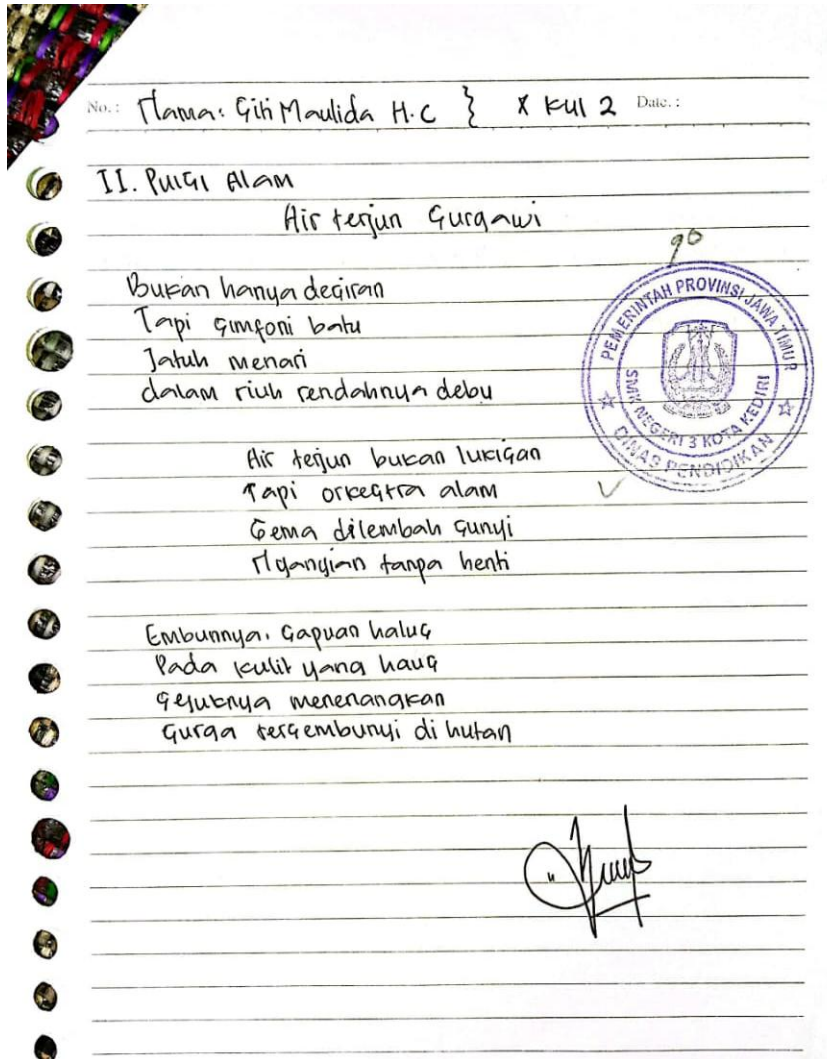 No.: Nama: Siti Maulida H.C } X Kul 2 Date.:
II. Puisi Alam
Air terjun Surgawi
90
Bukan hanya desiran
Tapi simfoni batu
Jatuh menari
dalam riuh rendahnya debu
PEMERINTAH PROVINSI JAWA TIMUR
SMK NEGERI 3 KOTA KEDIRI
DINAS PENDIDIKAN
Air terjun bukan lukisan
Tapi orkestra alam
Gema dilembah sunyi
Nyanyian tanpa henti
Embunnya. Sapuan halus
Pada kulit yang haus
Sejuknya menenangkan
Surga tersembunyi di hutan